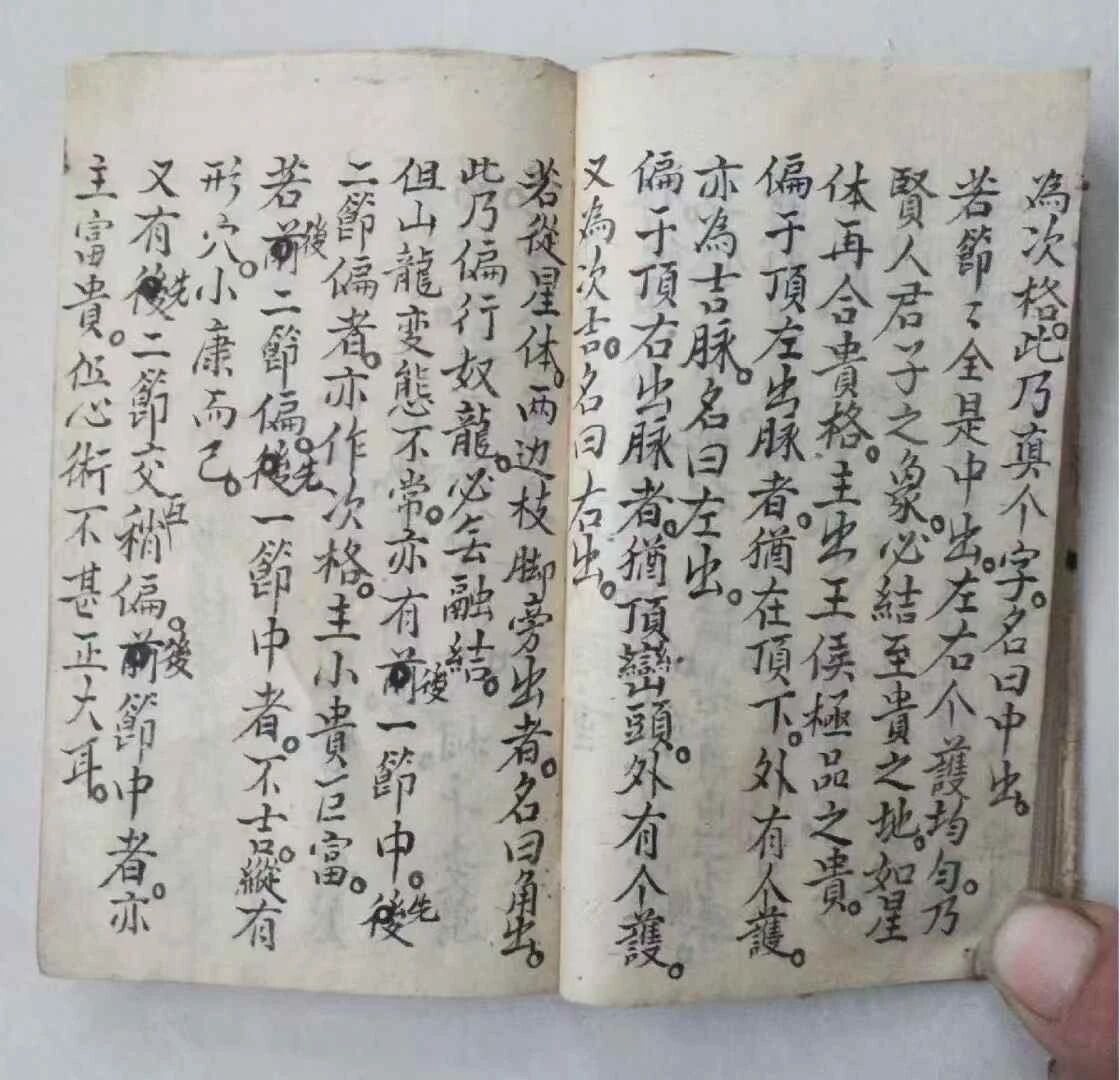 為次格。此乃真个字。名曰中出。
若節〻全是中出。左右个護均匀。乃
賢人君子之象。必結至貴之地。如星
体再合貴格。主出王侯極品之貴。
偏于頂左出脉者。猶在頂下。外有个護。
亦為吉脉。名曰左出。
偏于頂右出脉者。猶頂巒頭。外有个護。
又為次吉。名曰右出。
若從星体。两边枝脚旁出者。名曰角出。
此乃偏行奴龍。必無融結。
但山龍变態不常。亦有前後一節中。後先
二節偏者。亦作次格。主小貴巨富。
若前後二節偏。後先一節中者。不吉。縱有
形穴。小康而已。
又有後先二節交互稍偏。前後節中者。亦
主富貴。但心術不甚正大耳。